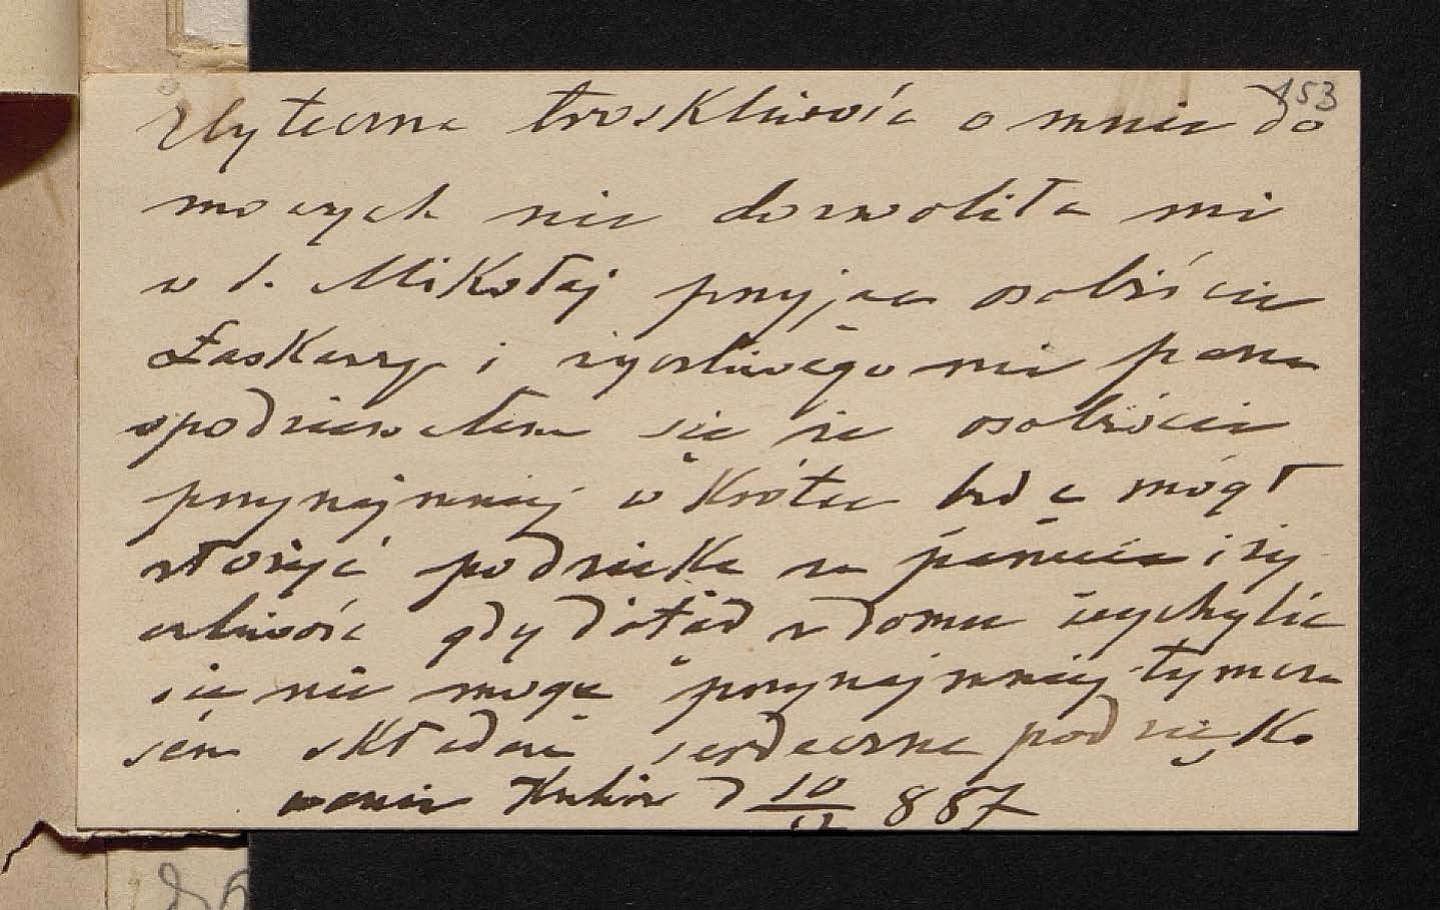 153
Zbyteczna troskliwość o mnie do
mowych nie dozwoliła mi
w d. Mikołaj przyjąć osobiście
Łaskawy i życzliwego mi pana
spodziewałem się że osobiście
przynajmniej w krótce będę mógł
złożyć podziękę za pamięć i ży
czliwość gdy dotąd z domu wychylić
się nie mogę przynajmniej tymcza
sem składam serdeczne podzięko
wanie d 10/12 887